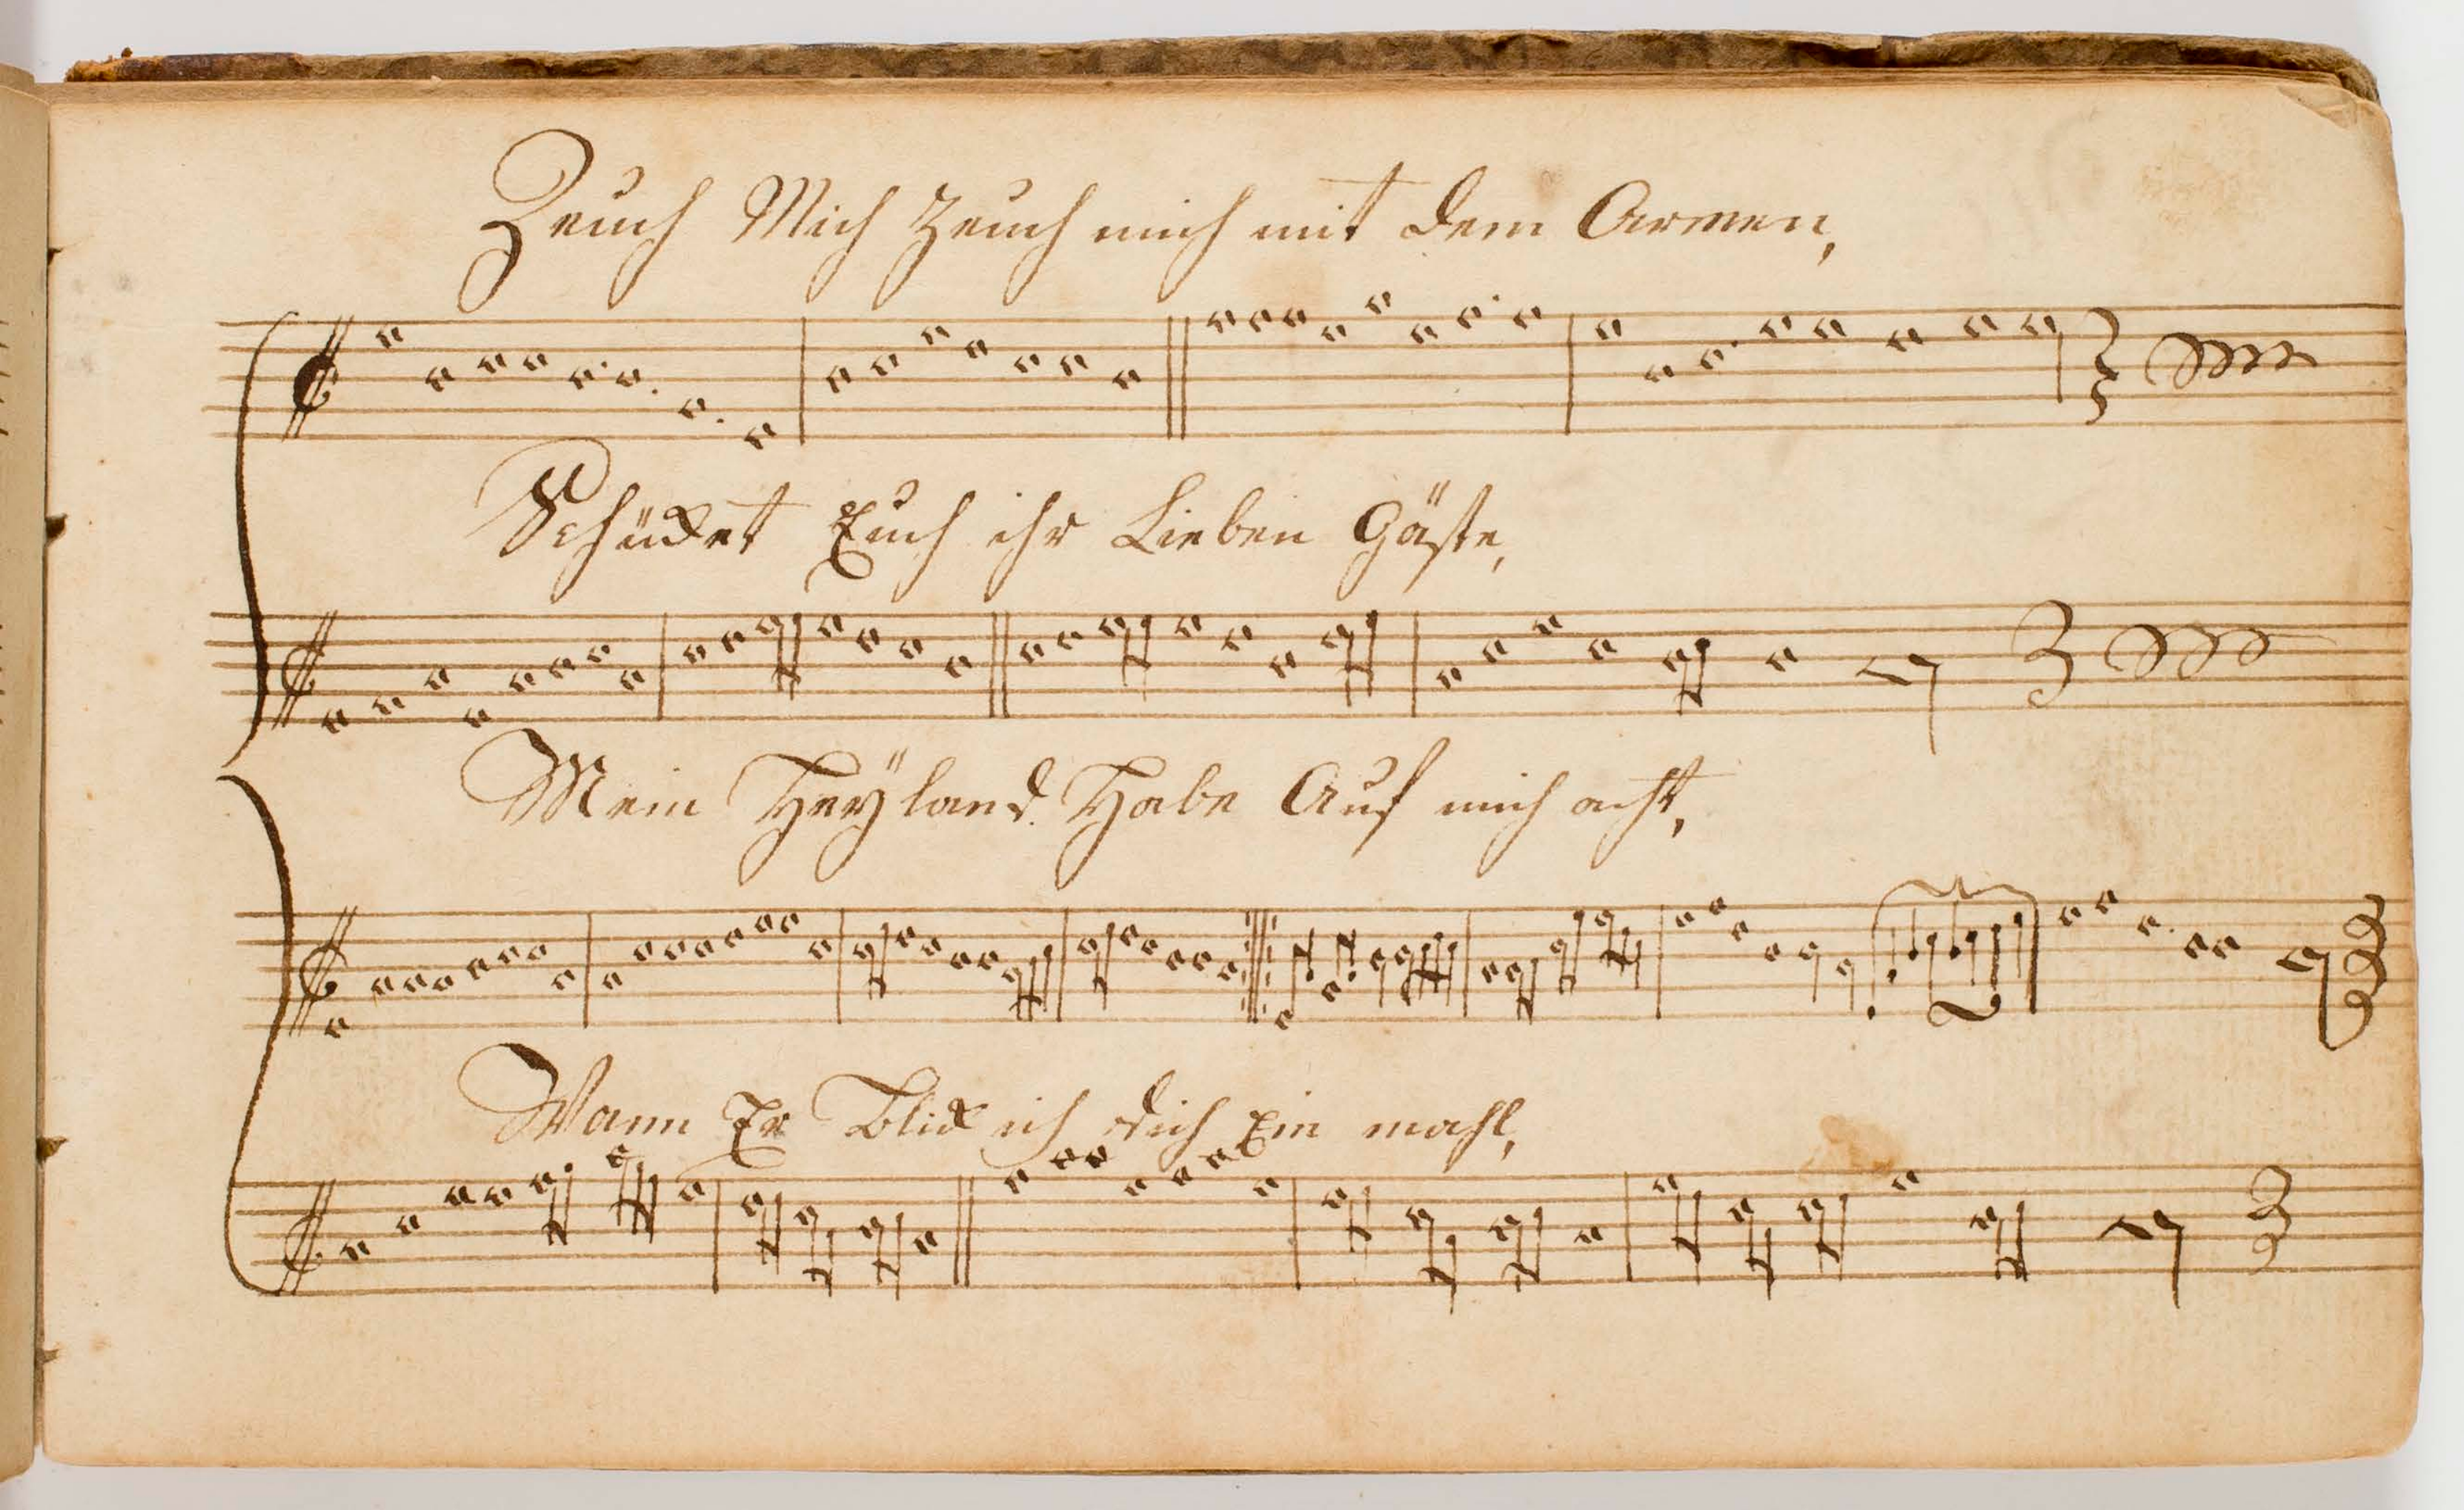 Zeuch Mich Zeuch mich mit dem Armen,
Schüket Euch ihr Lieben Gäste,
Mein Heÿland Habe Auf mich acht,
Wann Er Blick ich dich Ein mahl,